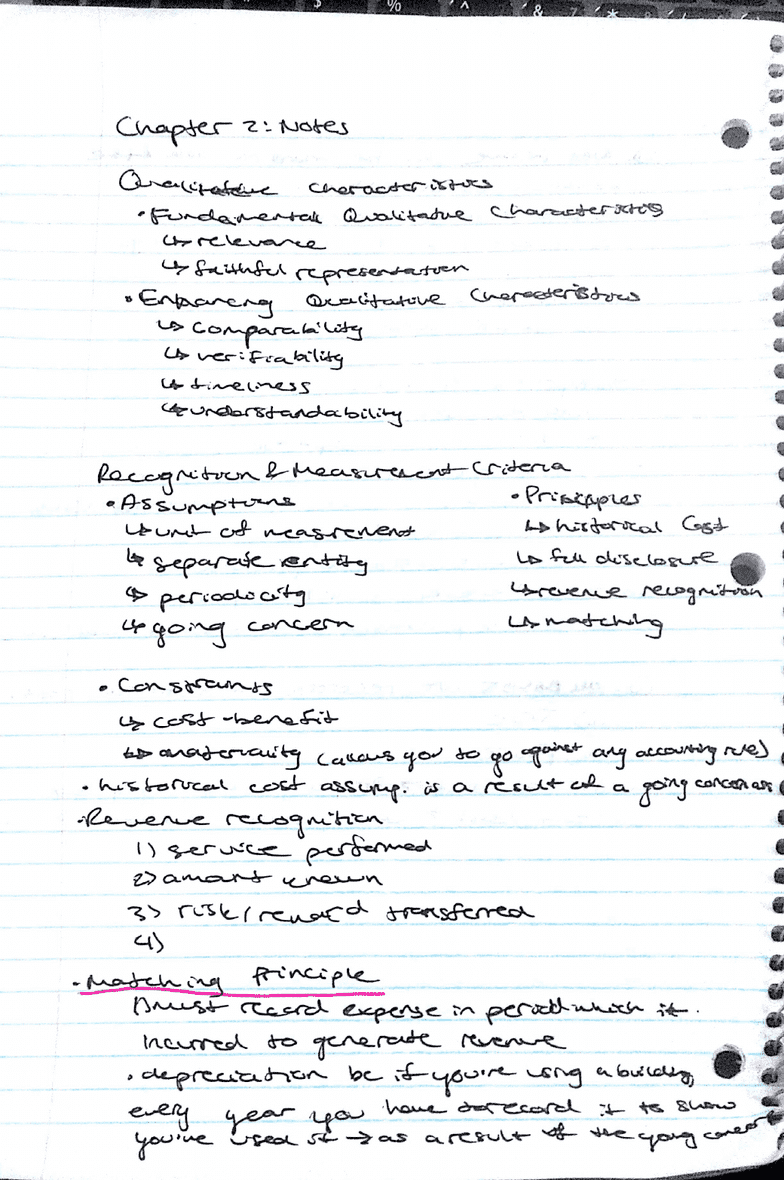 Chapter 2: Notes
Qualitative characteristics
• Fundamental Qualitative Characteristics
↳ relevance
↳ faithful representation
• Enhancing Qualitative Characteristics
↳ Comparability
↳ verifiability
↳ timeliness
↳ understandability
Recognition & Measurement Criteria
• Assumptions • Principples
↳ unit of measurement ↳ historical Cost
↳ separate entity ↳ full disclosure
↳ periodicity ↳ revenue recognition
↳ going concern ↳ matching
• Constraints
↳ cost-benefit
↳ materiality (allows you to go against any accounting rule)
• historical cost assump. is a result of a going concern ass
• Revenue recognition
1) service performed
2) amount known
3) risk/reward transferred
4)
• Matching Principle
must record expense in period which it
incurred to generate revenue
• depreciation bc if you're using a building,
every year you have to record it to show
you've used it → as a result of the going concer